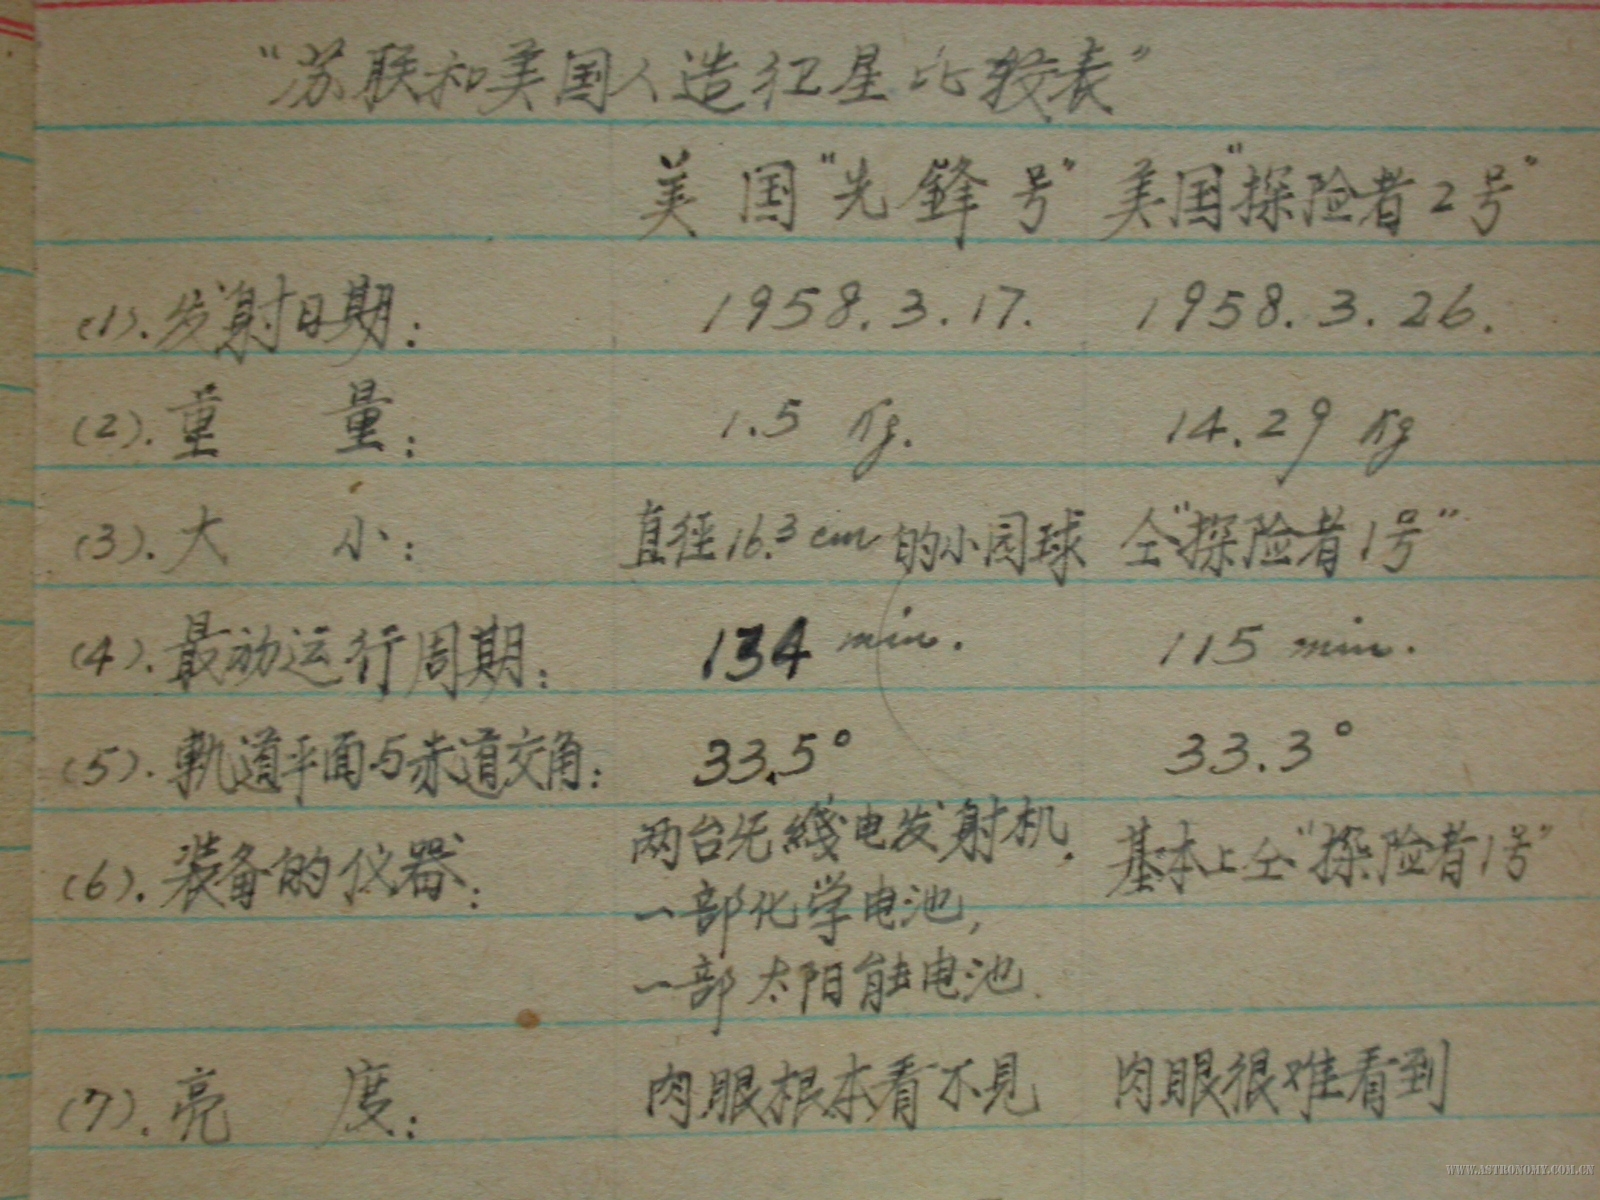 “苏联和美国人造红星比较表”
美国“先鋒号” 美国“探险者2号”
(1).发射日期: 1958.3.17. 1958.3.26.
(2).重量: 1.5 Kg. 14.29 Kg
(3).大小: 直径16.3cm的小园球 仝“探险者1号”
(4).最初运行周期: 134 min. 115 min.
(5).軌道平面与赤道交角: 33.5° 33.3°
(6).装备的仪器: 两台无綫电发射机, 基本上仝“探险者1号”
一部化学电池,
一部太阳能电池.
(7).亮度: 肉眼根本看不见 肉眼很难看到
WWW.ASTRONOMY.COM.CN